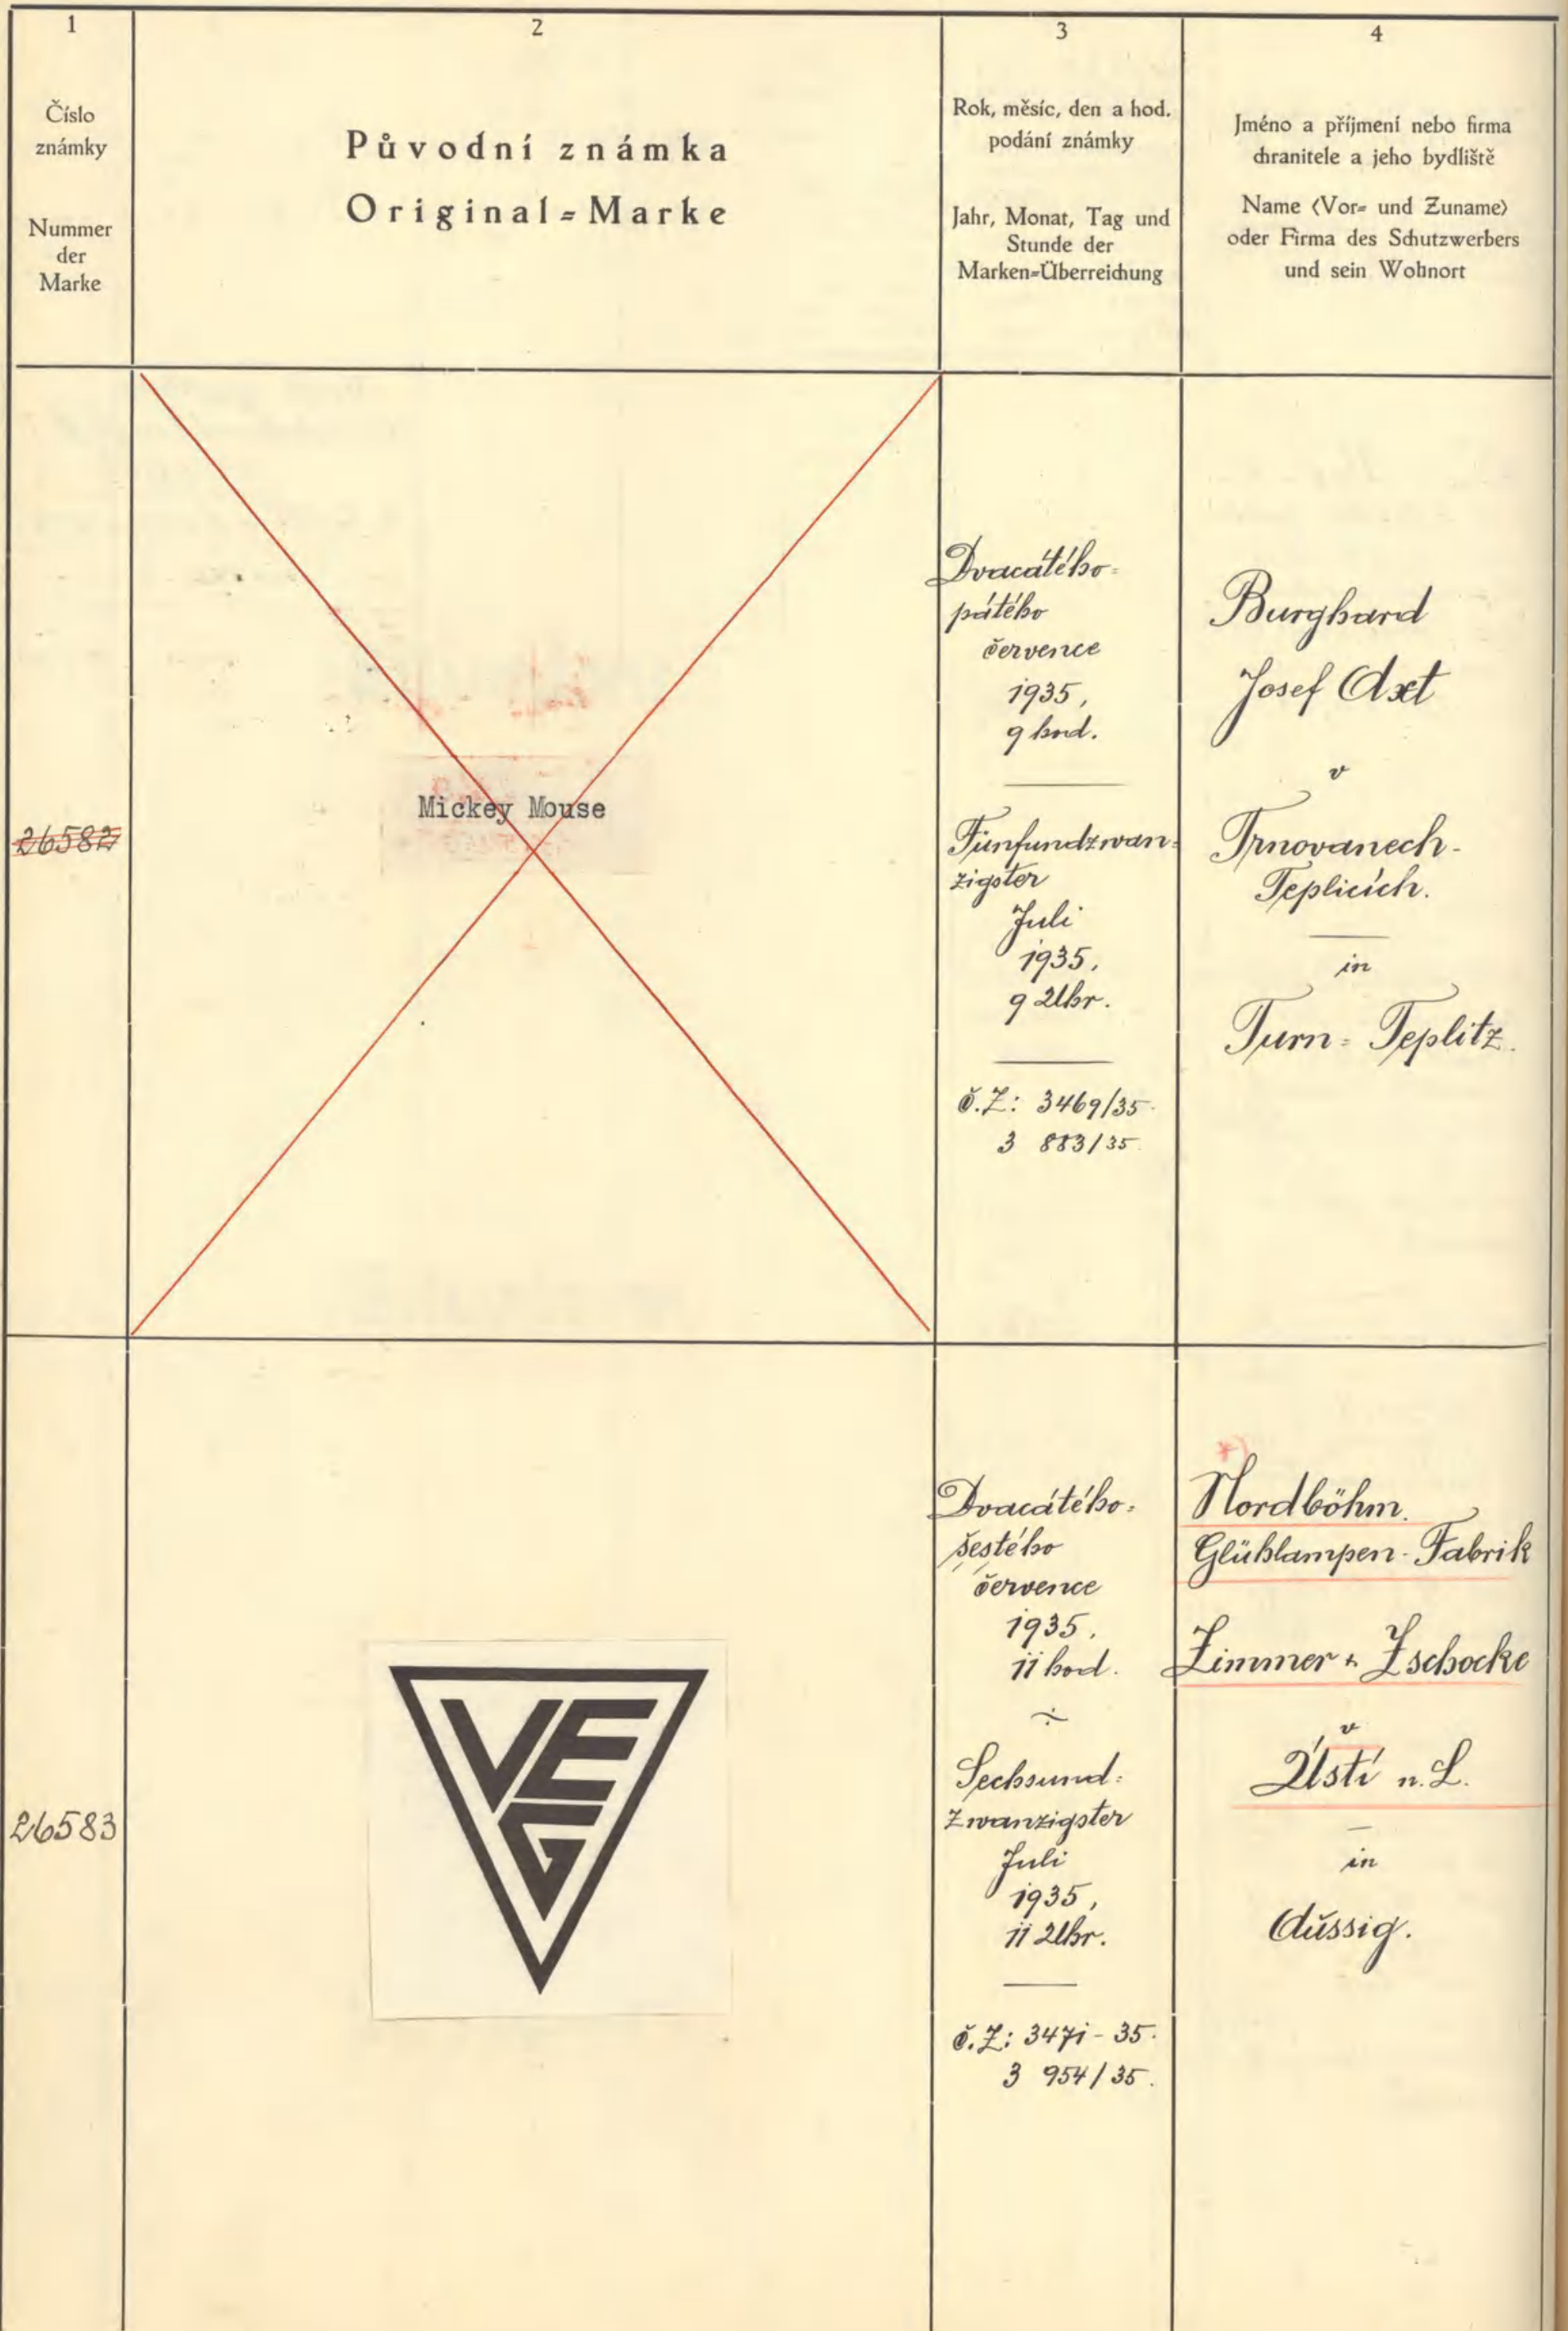 1
Číslo
známky
Nummer
der
Marke
2
Původní známka
Original-Marke
3
Rok, měsíc, den a hod.
podání známky
Jahr, Monat, Tag und
Stunde der
Marken-Überreichung
4
Jméno a příjmení nebo firma
chranitele a jeho bydliště
Name (Vor- und Zuname)
oder Firma des Schutzwerbers
und sein Wohnort
26582
Mickey Mouse
Dvacátého-
pátého
července
1935,
9 hod.
Fünfundzwan-
zigster
Juli
1935.
9 Uhr.
č.Z: 3469/35.
3 883/35.
Burghard
Josef Axt
v
Trnovanech-
Teplicích.
in
Turn-Teplitz.
26583
VEG
Dvacátého-
šestého
července
1935.
11 hod.
Sechsund-
zwanzigster
Juli
1935,
11 Uhr.
č.Z: 3471-35.
3 954/35.
*)
Nordböhm.
Glühlampen-Fabrik
Zimmer & Zschocke
v
Ústí n.L.
in
Aussig.